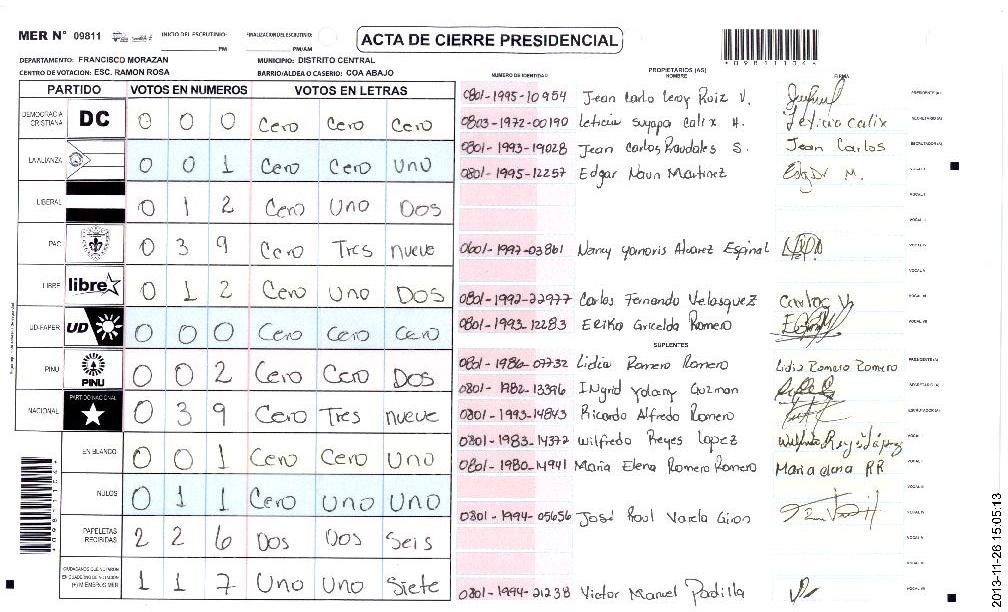 MER N° 09811
INICIO DEL ESCRUTINIO:
PM
FINALIZACION DEL ESCRUTINIO:
PM/AM
ACTA DE CIERRE PRESIDENCIAL
DEPARTAMENTO: FRANCISCO MORAZAN
MUNICIPIO: DISTRITO CENTRAL
CENTRO DE VOTACION: ESC. RAMON ROSA
BARRIO/ALDEA O CASERIO: COA ABAJO
PARTIDO VOTOS EN NUMEROS VOTOS EN LETRAS
DEMOCRACIA CRISTIANA DC 0 0 0 Cero Cero Cero
LA ALIANZA 0 0 1 Cero Cero Uno
LIBERAL 0 1 2 Cero Uno Dos
PAC 0 3 9 Cero Tres nueve
LIBRE libre 0 1 2 Cero Uno Dos
UD-FAPER UD 0 0 0 Cero Cero Cero
PINU PINU 0 0 2 Cero Cero Dos
NACIONAL PARTIDO NACIONAL 0 3 9 Cero Tres nueve
EN BLANCO 0 0 1 Cero Cero Uno
NULOS 0 1 1 Cero Uno Uno
PAPELETAS RECIBIDAS 2 2 6 Dos Dos Seis
CIUDADANOS QUE VOTARON EN CUADERNO DE VOTACION (+) MIEMBROS MER 1 1 7 Uno Uno Siete
PROPIETARIOS (AS)
NUMERO DE IDENTIDAD NOMBRE FIRMA
0801-1995-10954 Jean Carlo Leroy Ruiz V. PRESIDENTE (A)
0803-1972-00190 Leticia Suyapa Calix H. Leticia Calix SECRETARIO (A)
0801-1993-19028 Jean Carlos Raudales S. Jean Carlos ESCRUTADOR (A)
0801-1995-12257 Edgar Naun Martinez Edgar M. VOCAL I
VOCAL II
0601-1997-03861 Nancy Yamoris Alvarez Espinal
0801-1992-22977 Carlos Fernando Velasquez Carlos V.
0801-1993-12283 Erika Gricelda Romero
SUPLENTES
0801-1986-07732 Lidia Romero Romero Lidia Romero Romero PRESIDENTE (A)
0801-1982-13396 Ingrid Yolany Guzman SECRETARIO (A)
0801-1993-14843 Ricardo Alfredo Romero ESCRUTADOR (A)
0801-1983-14372 Wilfredo Reyes Lopez Wilfredo Reyes López
0801-1980-14941 Maria Elena Romero Romero Maria elena RR
0801-1994-05656 José Raul Varela Giron
0801-1994-21238 Victor Manuel Padilla
2013-11-26 15:05:13